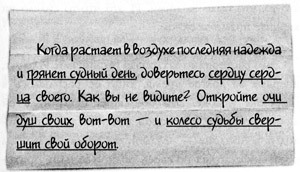 Когда растает в воздухе последняя надежда
и грянет судный день, доверьтесь сердцу серд-
ца своего. Как вы не видите? Откройте очи
душ своих, вот-вот — и колесо судьбы свер-
шит свой оборот.